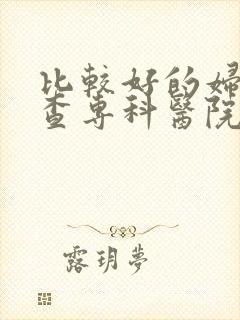 比較好的婦
查專科醫院
露玥夢